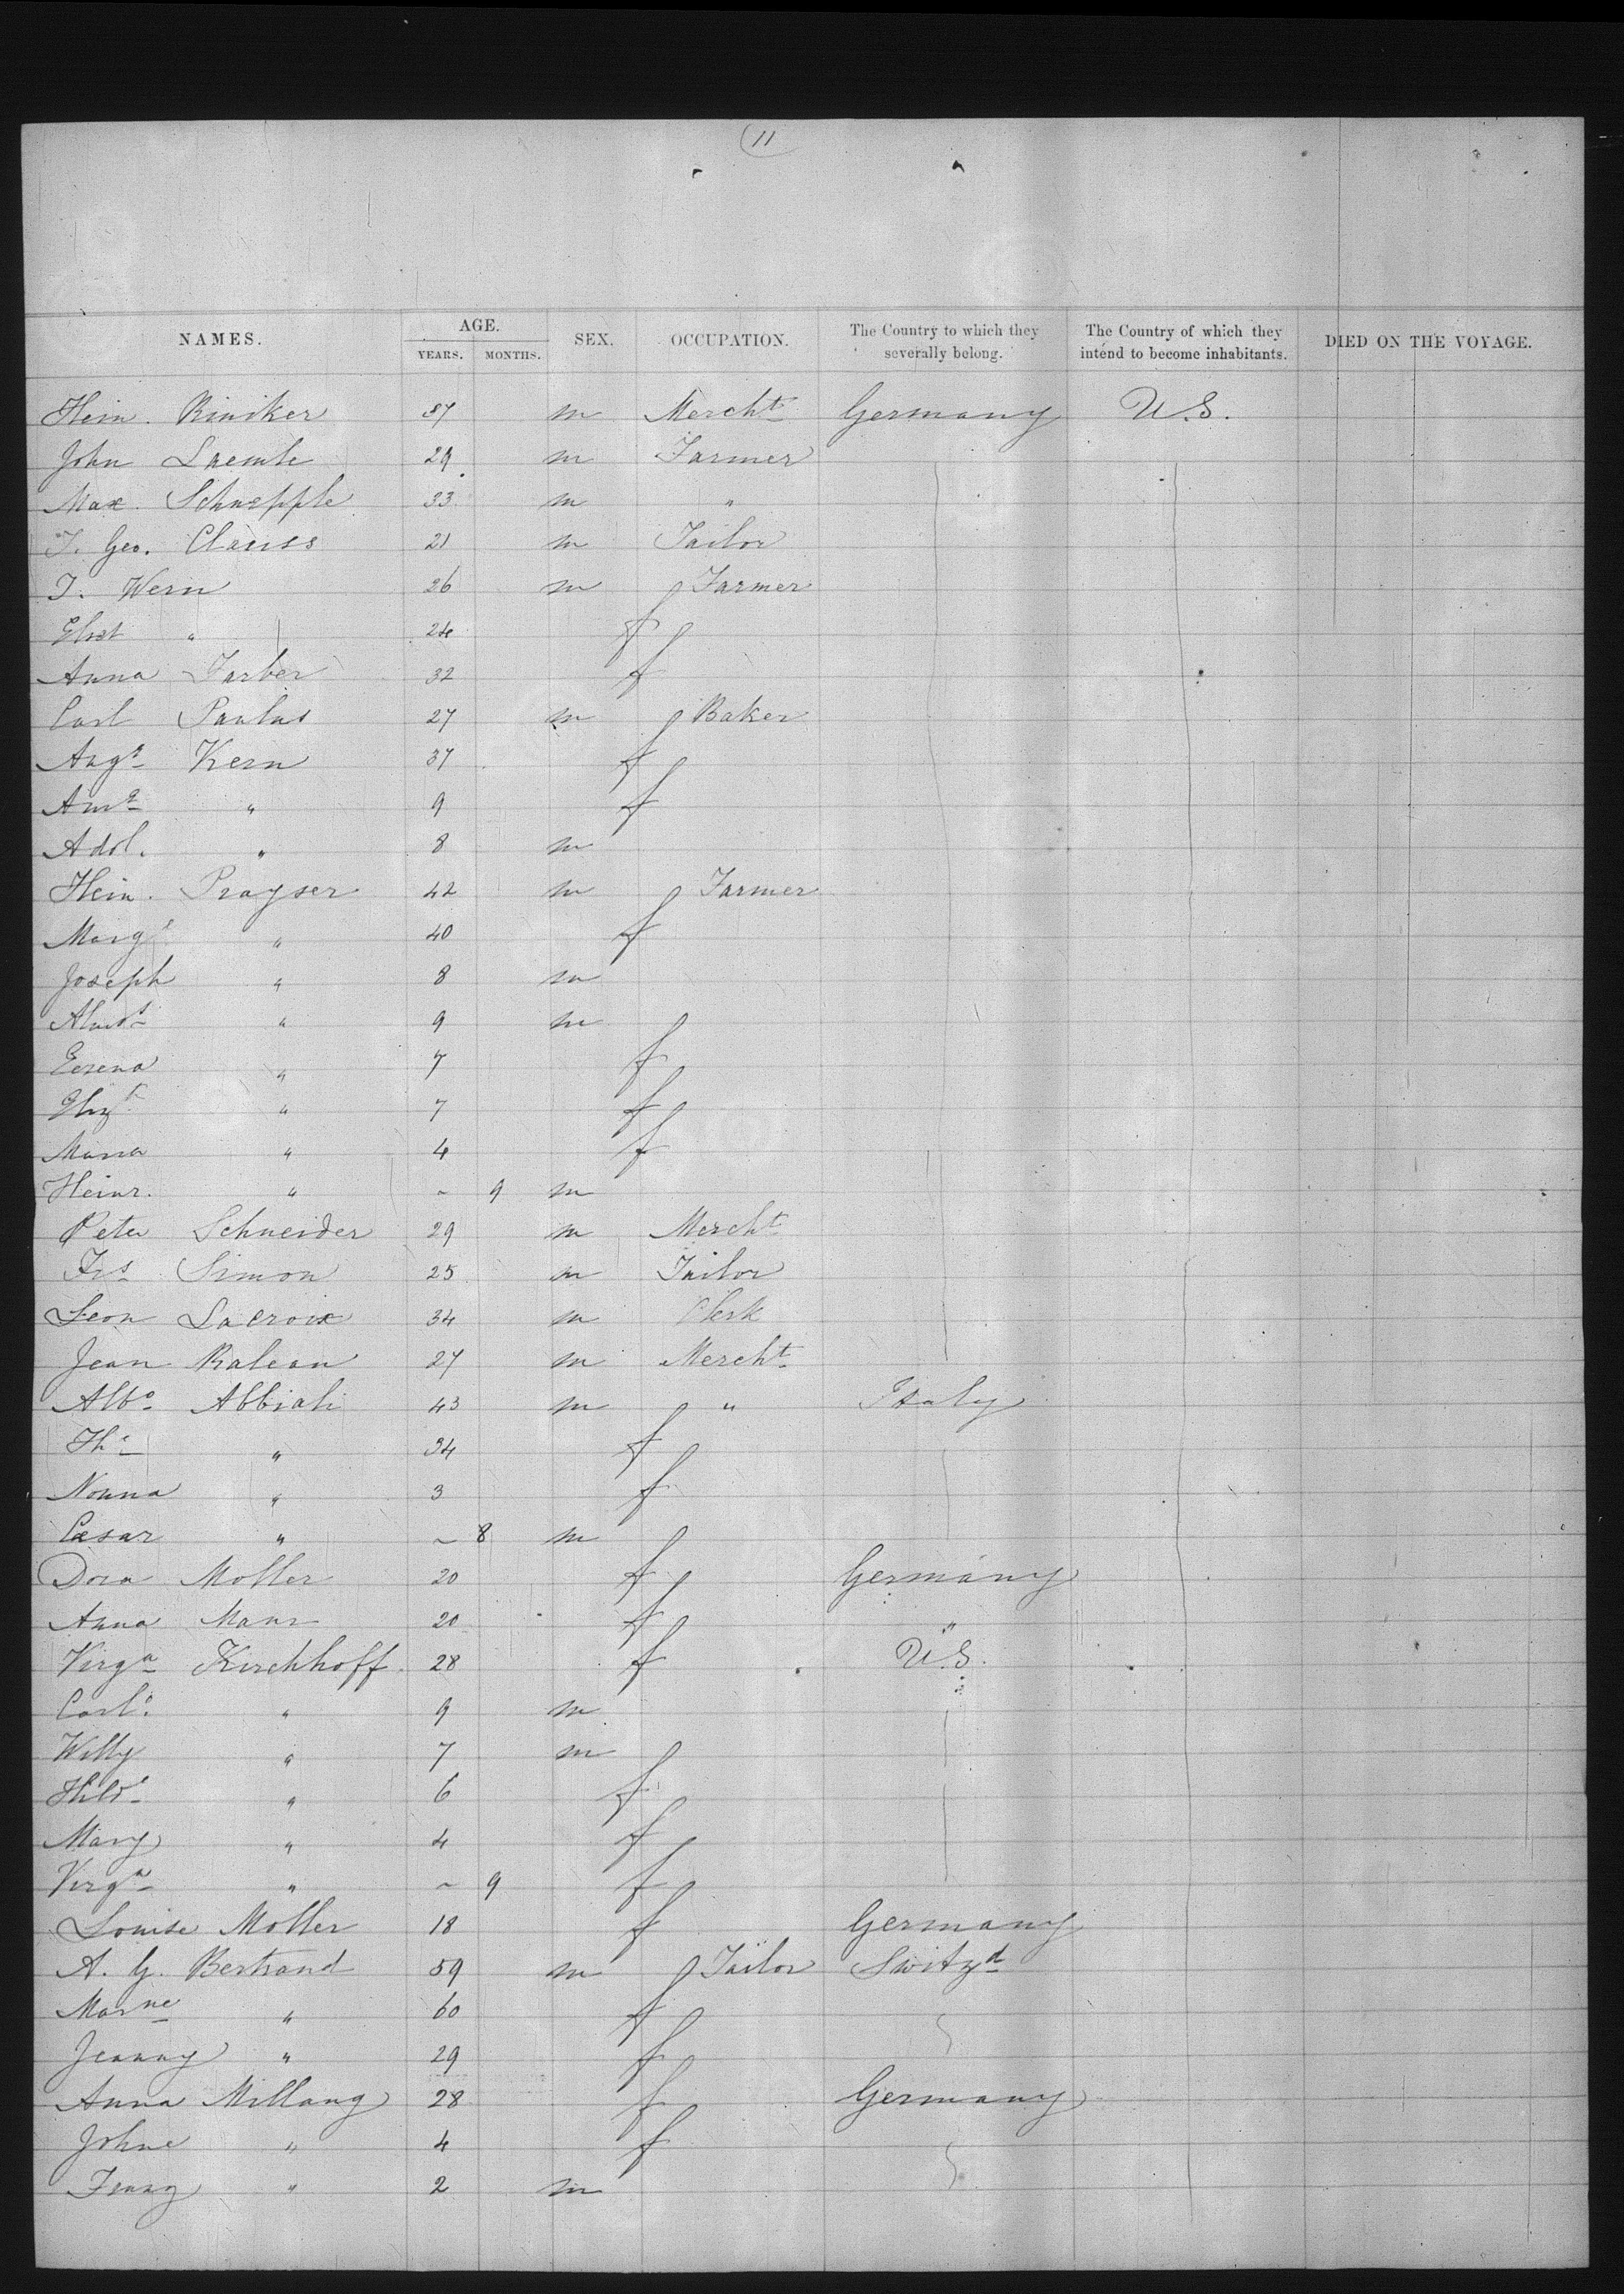 11
NAMES. AGE. SEX. OCCUPATION. The Country to which they severally belong. The Country of which they intend to become inhabitants. DIED ON THE VOYAGE.
YEARS. MONTHS.
Hein. Riniker 37 m Mercht Germany U.S.
John Laemle 29 m Farmer
Max. Schnepple 33 m "
J. Geo. Clauss 21 m Tailor
J. Wern 26 m Farmer
" 24 f
Anna Farber 32 f
Carl Paulus 27 m Baker
Auga Kern 37 f
" 9 f
Adol. " 8 m
Hein. Prayser 42 m Farmer
Margt " 40 f
Joseph " 8 m
" 9 m
" 7 f
" 7 f
Maria " 4 f
Heinr. " ~ 9 m
Peter Schneider 29 m Mercht
Frs Simon 25 m Tailor
Leon Lacroix 34 m Clerk
Jean Balean 27 m Mercht
Albo Abbiati 43 m " Italy
The " 34 f
Nonna " 3 f
Cesar " ~ 8 m
Dora Moller 20 f Germany
Anna Manr 20 f "
Virga Kirchhoff 28 f U.S.
Carlo " 9 m
Willy " 7 m
Hilde " 6 f
Mary " 4 f
Virga " ~ 9 f
Louise Moller 18 f Germany
A. G. Bertrand 59 m Tailor Switzd
Marne " 60 f
Jenny " 29 f
Anna Millang 28 f Germany
Johne " 4 f
" 2 m